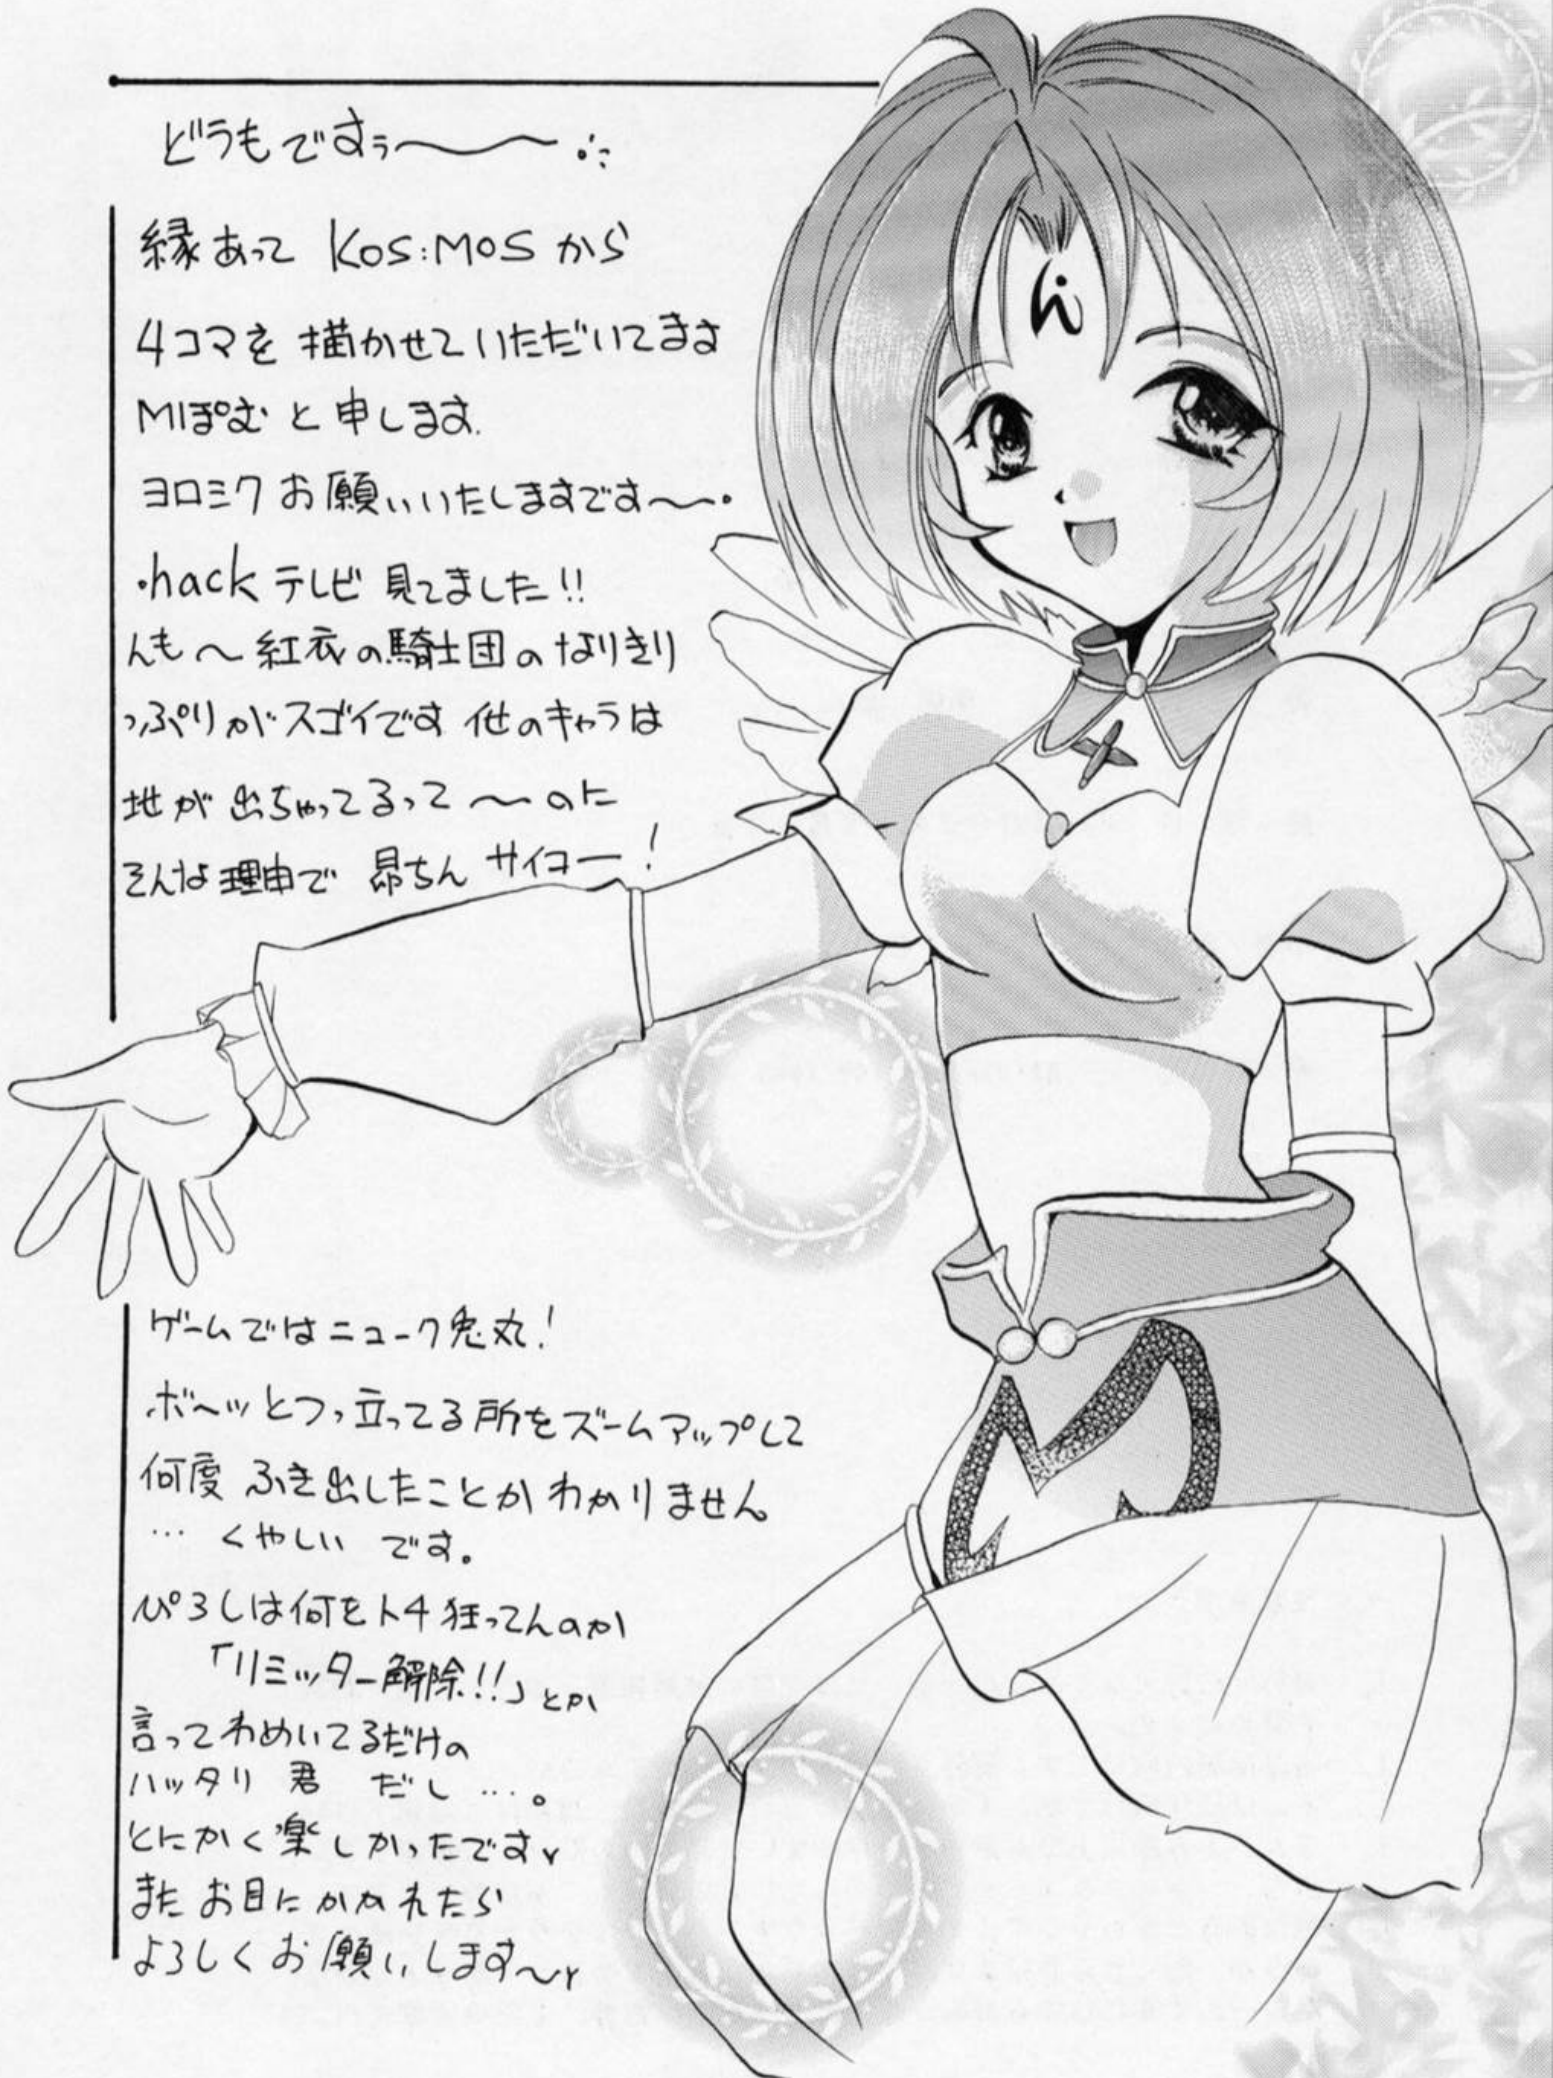 どうもですぅ〜〜
縁あって KOS:MOS から
4コマを描かせていただいてます
MIぽむ と申します.
ヨロミク お願いいたしますです〜〜・
.hack テレビ 見てました!!
んも〜 紅衣の騎士団のなりきり
っぷりがスゴイです 他のキャラは
地が出ちゃってるって〜のに
そんな理由で 昴ちん サイコー!
ん
ゲームではニューク兎丸!
ボ〜ッとつっ立ってる所をズームアップして
何度 ふき出したことか わかりません
… くやしい です。
ぴろしは何をトチ狂ってんのか
「リミッター解除!!」とか
言ってわめいてるだけの
ハッタリ 君 だし …。
とにかく楽しかったです
また お目にかかれたら
よろしくお願いします〜